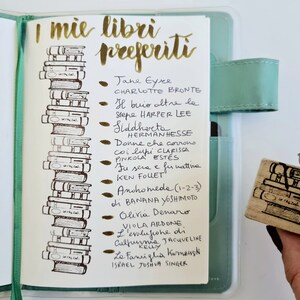 I miei libri
preferiti
Jane Eyre
CHARLOTTE BRONTE
Il buio oltre la
siepe HARPER LEE
Siddharta
HERMANHESSE
Donne che corrono
coi lupi CLARISSA
PINKOLA ESTÉS
Fu sera e fu mattina
KEN FOLLET
Andromeda (1-2-3)
di BANANA YOSHIMOTO
Olivia Denaro
VIOLA ARDONE
L'evoluzione di
Calpurnia JACQUELINE
KELLY
La Famiglia Karnowski
ISRAEL JOSHUA SINGER